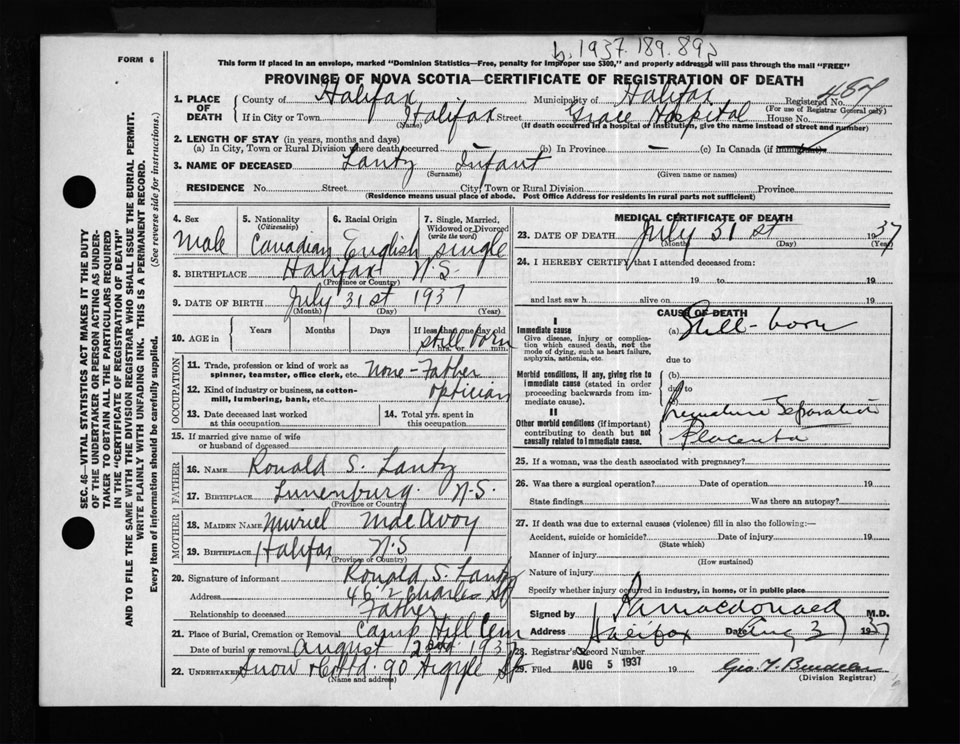 b. 1937. 189. 892
FORM 6
This form if placed in an envelope, marked "Dominion Statistics—Free, penalty for improper use $300," and properly addressed will pass through the mail "FREE"
PROVINCE OF NOVA SCOTIA—CERTIFICATE OF REGISTRATION OF DEATH
1. PLACE OF DEATH County of Halifax Municipality of Halifax Registered No.
(For use of Registrar General only)
If in City or Town Halifax Street Grace Hospital House No.
(Name) (If death occurred in a hospital or institution, give the name instead of street and number)
2. LENGTH OF STAY (in years, months and days)
(a) In City, Town or Rural Division where death occurred — (b) In Province — (c) In Canada (if immigrant)
3. NAME OF DECEASED Lantz Infant
(Surname) (Given name or names)
RESIDENCE No. Street City, Town or Rural Division Province
(Residence means usual place of abode. Post Office Address for residents in rural parts not sufficient)
4. Sex 5. Nationality (Citizenship) 6. Racial Origin 7. Single, Married, Widowed or Divorced (write the word)
Male Canadian English Single
8. BIRTHPLACE Halifax N.S.
(Province or Country)
9. DATE OF BIRTH July 31st 1937
(Month) (Day) (Year)
10. AGE in Years Months Days If less than one day old
Still born
hrs. or min.
OCCUPATION
11. Trade, profession or kind of work as spinner, teamster, office clerk, etc. None - Father
12. Kind of industry or business, as cotton-mill, lumbering, bank, etc. Optician
13. Date deceased last worked at this occupation 14. Total yrs. spent in this occupation
15. If married give name of wife or husband of deceased
FATHER
16. NAME Ronald S. Lantz
17. BIRTHPLACE Lunenburg. N.S.
(Province or Country)
MOTHER
18. MAIDEN NAME Muriel MacAvoy
19. BIRTHPLACE Halifax N.S
(Province or Country)
20. Signature of informant Ronald S. Lantz
Address Charles St
Relationship to deceased Father
21. Place of Burial, Cremation or Removal Camp Hill Cem
Date of burial or removal August 2nd 1937
22. UNDERTAKER Snow & Co Ltd. 90 Argyle St
(Name and address)
MEDICAL CERTIFICATE OF DEATH
23. DATE OF DEATH July 31st 1937
(Month) (Day) (Year)
24. I HEREBY CERTIFY that I attended deceased from:
19 to 19
and last saw h alive on 19
CAUSE OF DEATH
I
Immediate cause (a) Still-born
Give disease, injury or complication which caused death, not the mode of dying, such as heart failure, asphyxia, asthenia, etc.
due to
Morbid conditions, if any, giving rise to immediate cause (stated in order proceeding backwards from immediate cause). (b)
due to
(c)
II
Other morbid conditions (if important) contributing to death but not causally related to immediate cause.
Premature Separation
Placenta
25. If a woman, was the death associated with pregnancy?
26. Was there a surgical operation? Date of operation 19
State findings Was there an autopsy?
27. If death was due to external causes (violence) fill in also the following:—
Accident, suicide or homicide? Date of injury 19
(State which)
Manner of injury
(How sustained)
Nature of injury
Specify whether injury occurred in industry, in home, or in public place
Signed by Macdonald M.D.
Address Halifax Date Aug 3 1937
28. Registrar's Record Number
29. Filed AUG 5 1937 19
(Division Registrar)
SEC. 46—VITAL STATISTICS ACT MAKES IT THE DUTY
OF THE UNDERTAKER OR PERSON ACTING AS UNDER-
TAKER TO OBTAIN ALL THE PARTICULARS REQUIRED
IN THE "CERTIFICATE OF REGISTRATION OF DEATH"
AND TO FILE THE SAME WITH THE DIVISION REGISTRAR WHO SHALL ISSUE THE BURIAL PERMIT.
WRITE PLAINLY WITH UNFADING INK. THIS IS A PERMANENT RECORD.
Every item of information should be carefully supplied. (See reverse side for instructions.)